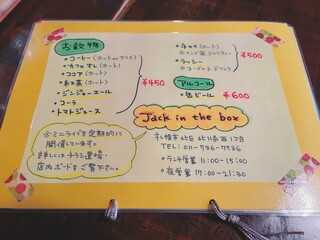 お飲物
・コーヒー(ホット or アイス)
・カフェオレ(ホット)
・ココア(ホット)
・紅茶(ホット)
・ジンジャーエール
・コーラ
・トマトジュース
¥450
・チャイ(ホット)
・ラッシー
¥500
アルコール
・缶ビール ¥600
Jack in the box
※ミニライブを定期的に
開催しています。
詳しくはチラシ裏や
店内ボードをご覧下さい。
札幌市北区北
TEL: 011-736-7736
・ランチ営業 11:00-15:00
・夜営業 17:00-21:30